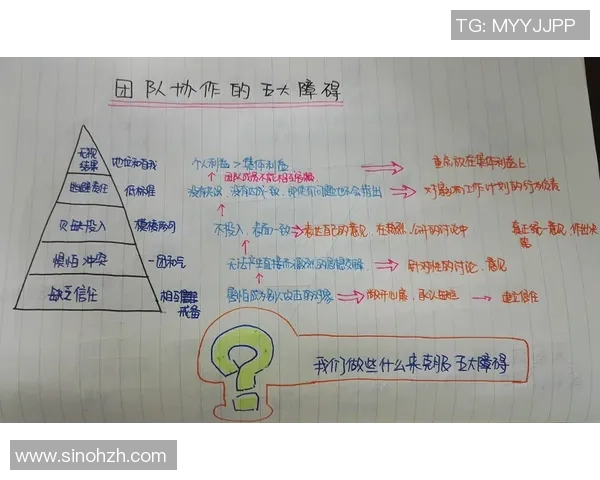 TG: MYYJJPP
团队协作的五大障碍
无视
结果
地位和自我
个人利益>集体利益
重点放在集体利益上
团队成员不能相互
逃避责任
低标准
没有达成一致,即使有问题也不会指出
对影响工作计划的行为负责
欠缺投入
模棱两可
不投入,表面一致
表达自己的意见,在激烈、公开的讨论中
真正统一意见,作出决
策
惧怕冲突
一团和气
无法产生直接而激烈的思想交锋
针对性的讨论、意见
缺乏信任
相互
戒备
害怕成为别人攻击的对象
敞开心扉,承认
建立信任
我们做些什么来克服五大障碍
www.sinohzh.com